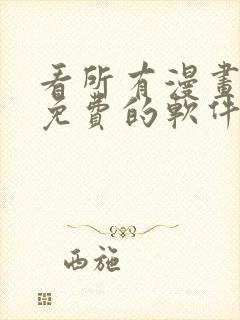 看所有漫畫
免費的軟件
西施